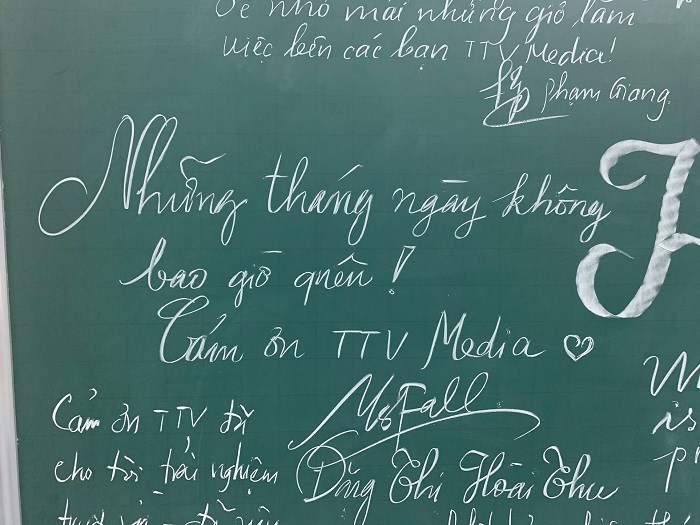 nhớ mãi những giờ làm
việc bên các bạn TTV Media!
Phạm Giang
Những tháng ngày không
bao giờ quên!
Cảm ơn TTV Media ♡
Ms Fall
Đặng Thị Hoài Thu
Cảm ơn TTV đã
cho tôi trải nghiệm
H
W
is